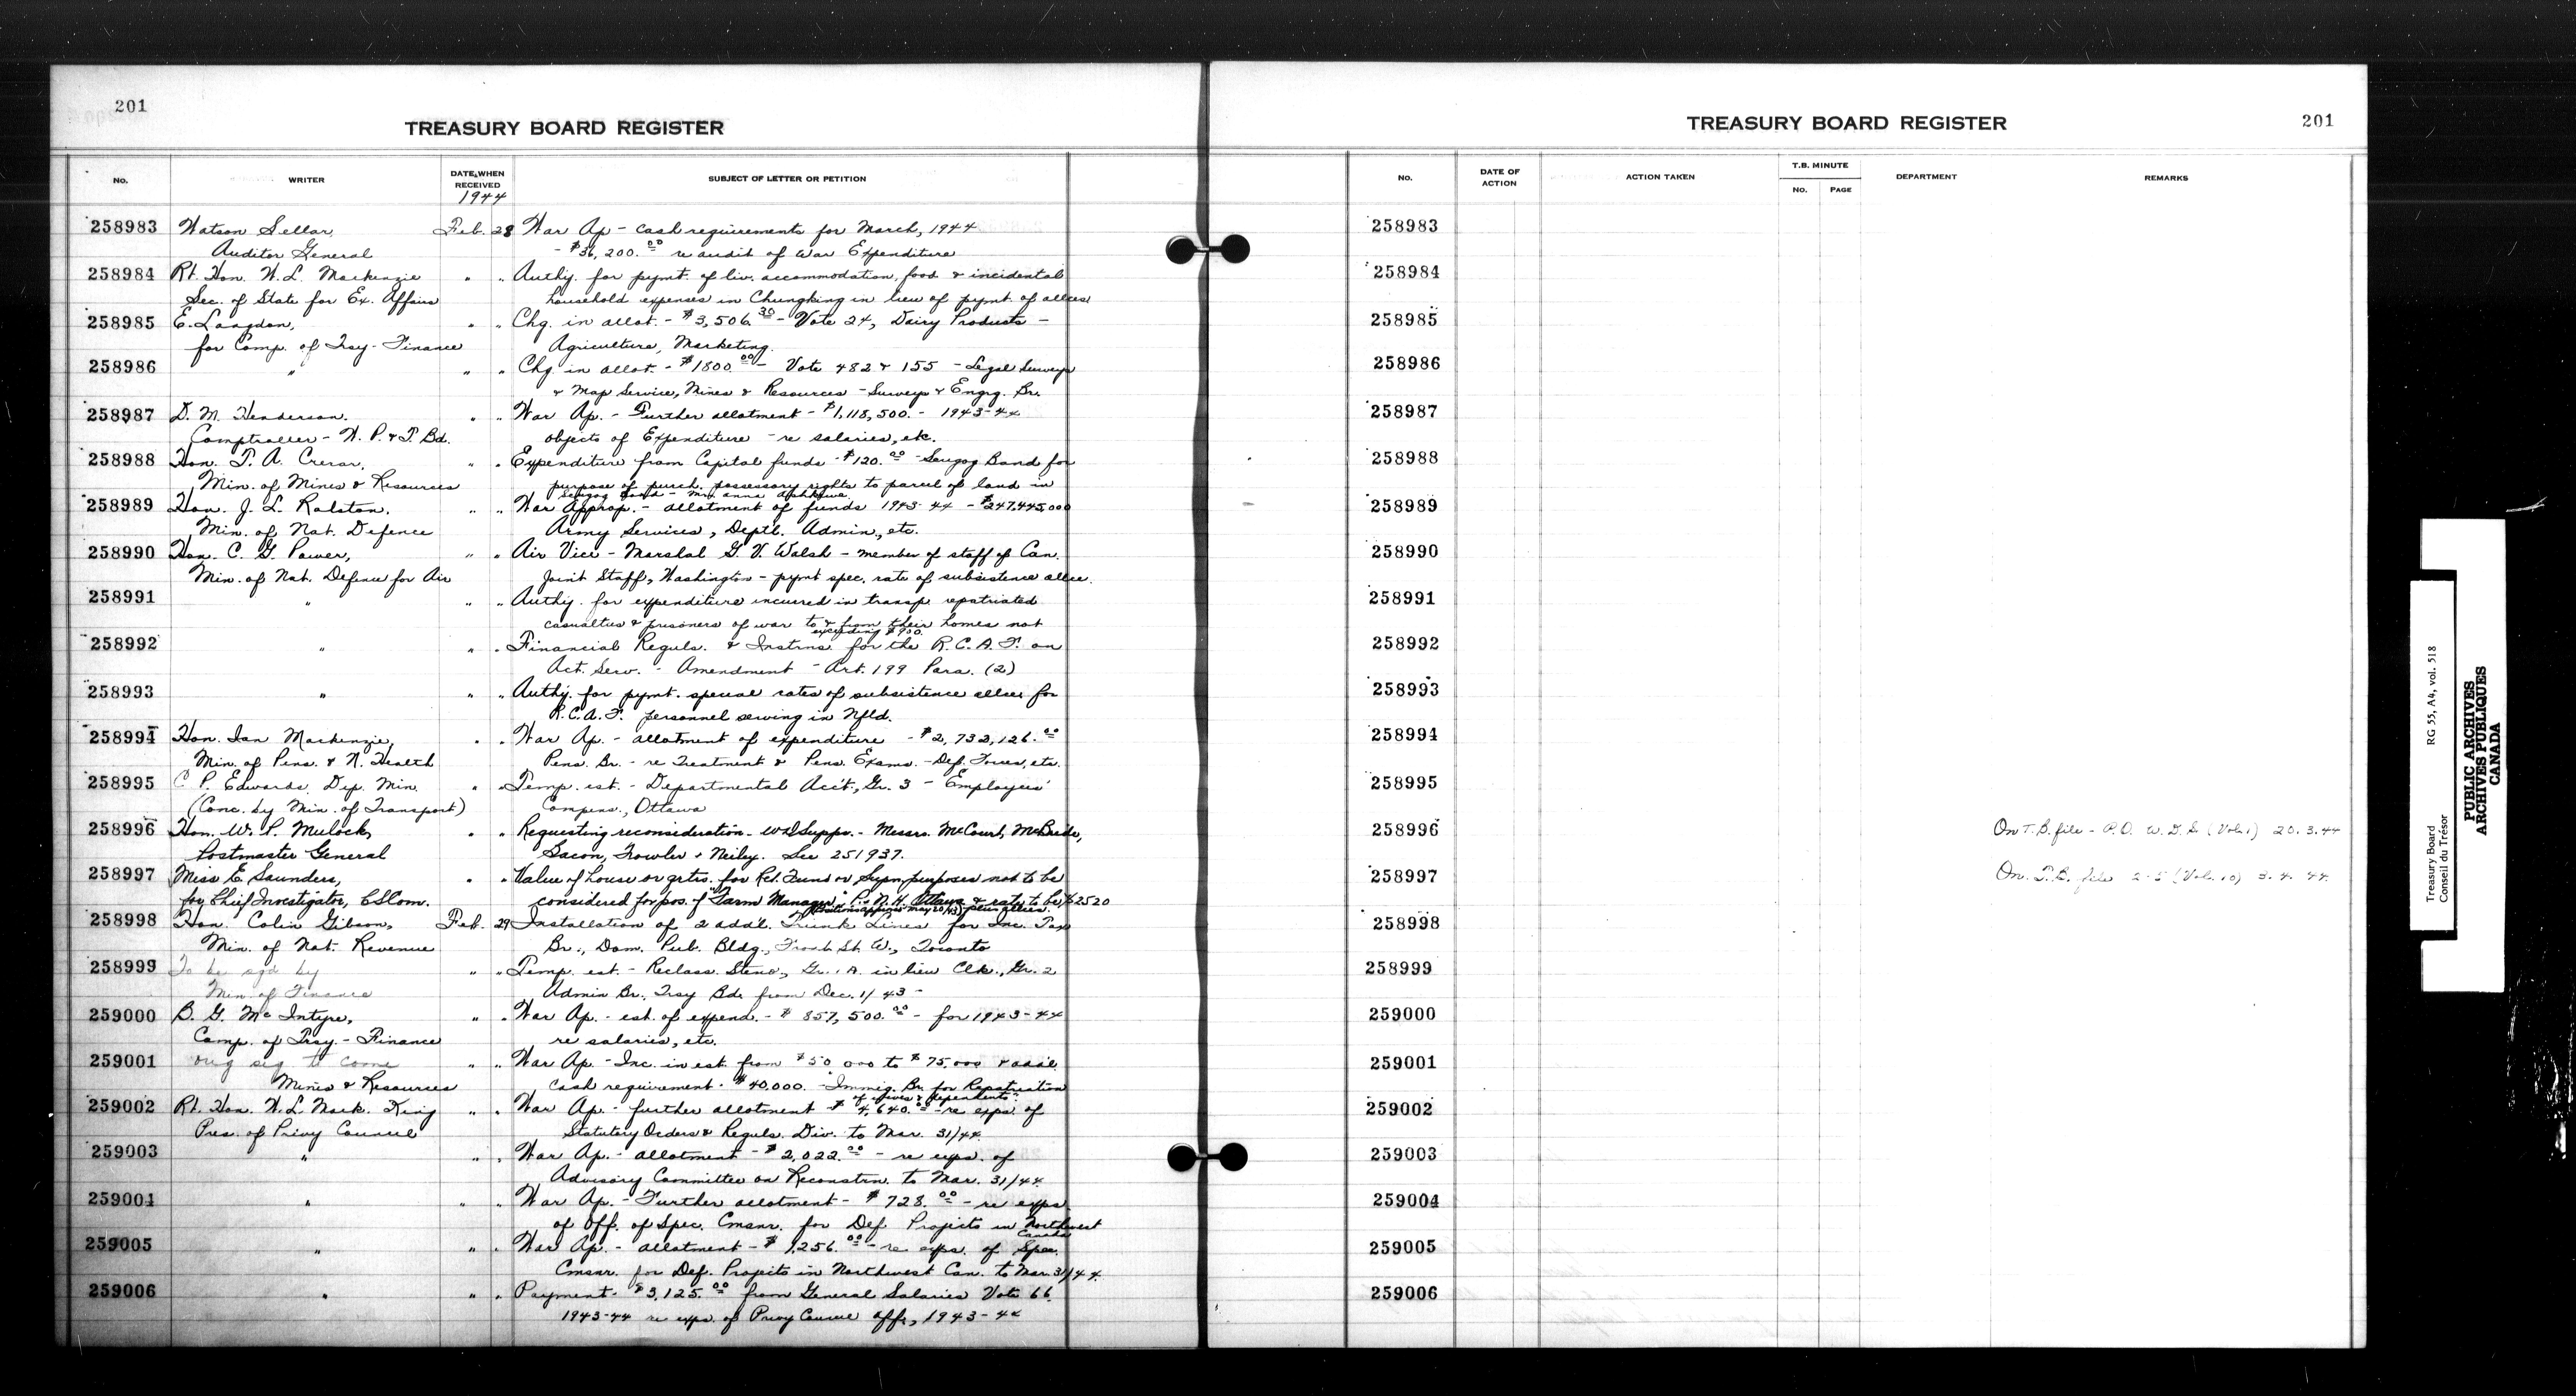 201
TREASURY BOARD REGISTER
No. WRITER DATE WHEN RECEIVED SUBJECT OF LETTER OR PETITION
1944
258983 Watson Sellar, Feb. 28 War Ap - cash requirements for March, 1944
Auditor General - $36,200.00 re audit of War Expenditure
258984 Rt. Hon. W. L. Mackenzie " " Authy. for pymt. of liv. accommodation, food & incidental
Sec. of State for Ex. Affairs household expenses in Chungking in lieu of pymt. of allces
258985 E. Langdon, " " Chg. in allot. - $3,506.30 - Vote 24, Dairy Products -
for Comp. of Trsy - Finance Agriculture, Marketing.
258986 " " " Chg. in allot. - $1800.00 - Vote 482 & 155 - Legal Surveys
& Map Service, Mines & Resources - Surveys & Engrg. Br.
258987 D. M. Henderson. " " War Ap. - Further allotment - $1,118,500. - 1943-44
Comptroller - W. P. & T. Bd. objects of Expenditure - re salaries, etc.
258988 Hon. T. A. Crerar, " " Expenditure from Capital funds - $120.00 - Scugog Band for
Min. of Mines & Resources purpose of purch. possessory rights to parcel of land in
Scugog Band - Mrs. Anna
258989 Hon. J. L. Ralston. " " War Approp. - allotment of funds 1943-44 - $247,445,000
Min. of Nat. Defence Army Services, Deptl. Admin., etc.
258990 Hon. C. G. Power, " " Air Vice - Marshal G. V. Walsh - member of staff of Can.
Min. of Nat. Defence for Air Joint Staff, Washington - pymt spec. rate of subsistence allce.
258991 " " " Authy. for expenditure incurred in transp. repatriated
casualties & prisoners of war to & from their homes not
exceeding $900.
258992 " " " Financial Reguls. & Instrns. for the R.C.A.F. on
Act. Serv. - Amendment - Art. 199 Para. (2)
258993 " " " Authy. for pymt. special rates of subsistence allces for
R.C.A.F. personnel serving in Nfld.
258994 Hon. Ian Mackenzie, " " War Ap. - allotment of expenditure - $2,732,126.00
Min. of Pens. & N. Health Pens. Br. - re Treatment & Pens. Exams. - Def. Forces, etc.
258995 C. P. Edwards, Dep. Min. " " Temp. est. - Departmental Acc't., Gr. 3 - Employees'
(Conc. by Min. of Transport) Compens., Ottawa
258996 Hon. W. P. Mulock, " " Requesting reconsideration - WDSupps. - Messrs. McCourt, McBride,
Postmaster General Bacon, Fowler & Neiley. See 251937.
258997 Miss E. Saunders, " " Value of house or qrtrs. for Ret. Fund or Supn. purposes not to be
for Chief Investigator, CSCom. considered for pos. of "Farm Manager" P. & N. H. Ottawa & rate to be $2520
258998 Hon. Colin Gibson, Feb. 29 Installation of 2 addl. Trunk Lines for Inc. Tax
Min. of Nat. Revenue Br., Dom. Pub. Bldg., Front St. W., Toronto
258999 To be sgd by " " Temp. est. - Reclass. Steno, Gr. 1A. in lieu Clk., Gr. 2
Min. of Finance Admin Br., Trsy Bd. from Dec. 1/43 -
259000 B. G. McIntyre, " " War Ap. - est. of expend. - $857,500.00 - for 1943-44
Comp. of Trsy. - Finance re salaries, etc.
259001 orig sig to come " " War Ap. - Inc. in est. from $50,000 to $75,000 & addl.
Mines & Resources cash requirement - $40,000. - Immig. Br. for Repatriation
of wives & dependents.
259002 Rt. Hon. W. L. Mack. King " " War Ap. - further allotment - $4,640.00 - re exps. of
Pres. of Privy Council Statutory Orders & Reguls. Div. to Mar. 31/44.
259003 " " " War Ap. - allotment - $2,022.00 - re exps. of
Advisory Committee on Reconstrn. to Mar. 31/44.
259004 " " " War Ap. - Further allotment - $728.00 - re exps.
of Off. of Spec. Cmsnr. for Def. Projects in Northwest
Canada
259005 " " " War Ap. - allotment - $1,256.00 - re exps. of Spec.
Cmsnr. for Def. Projects in Northwest Can. to Mar. 31/44.
259006 " " " Payment - $3,125.00 from General Salaries Vote 66.
1943-44 re exps. of Privy Council Off., 1943-44
TREASURY BOARD REGISTER
201
No. DATE OF ACTION ACTION TAKEN T.B. MINUTE No. PAGE DEPARTMENT REMARKS
258983
258984
258985
258986
258987
258988
258989
258990
258991
258992
258993
258994
258995
258996 On T.B. file - P.O. W.D.S. (Vol. 1) 20.3.44
258997 On T.B. file 2-5 (Vol. 10) 3.4.44
258998
258999
259000
259001
259002
259003
259004
259005
259006
Treasury Board RG 55, A4, vol. 518
Conseil du Trésor
PUBLIC ARCHIVES
ARCHIVES PUBLIQUES
CANADA